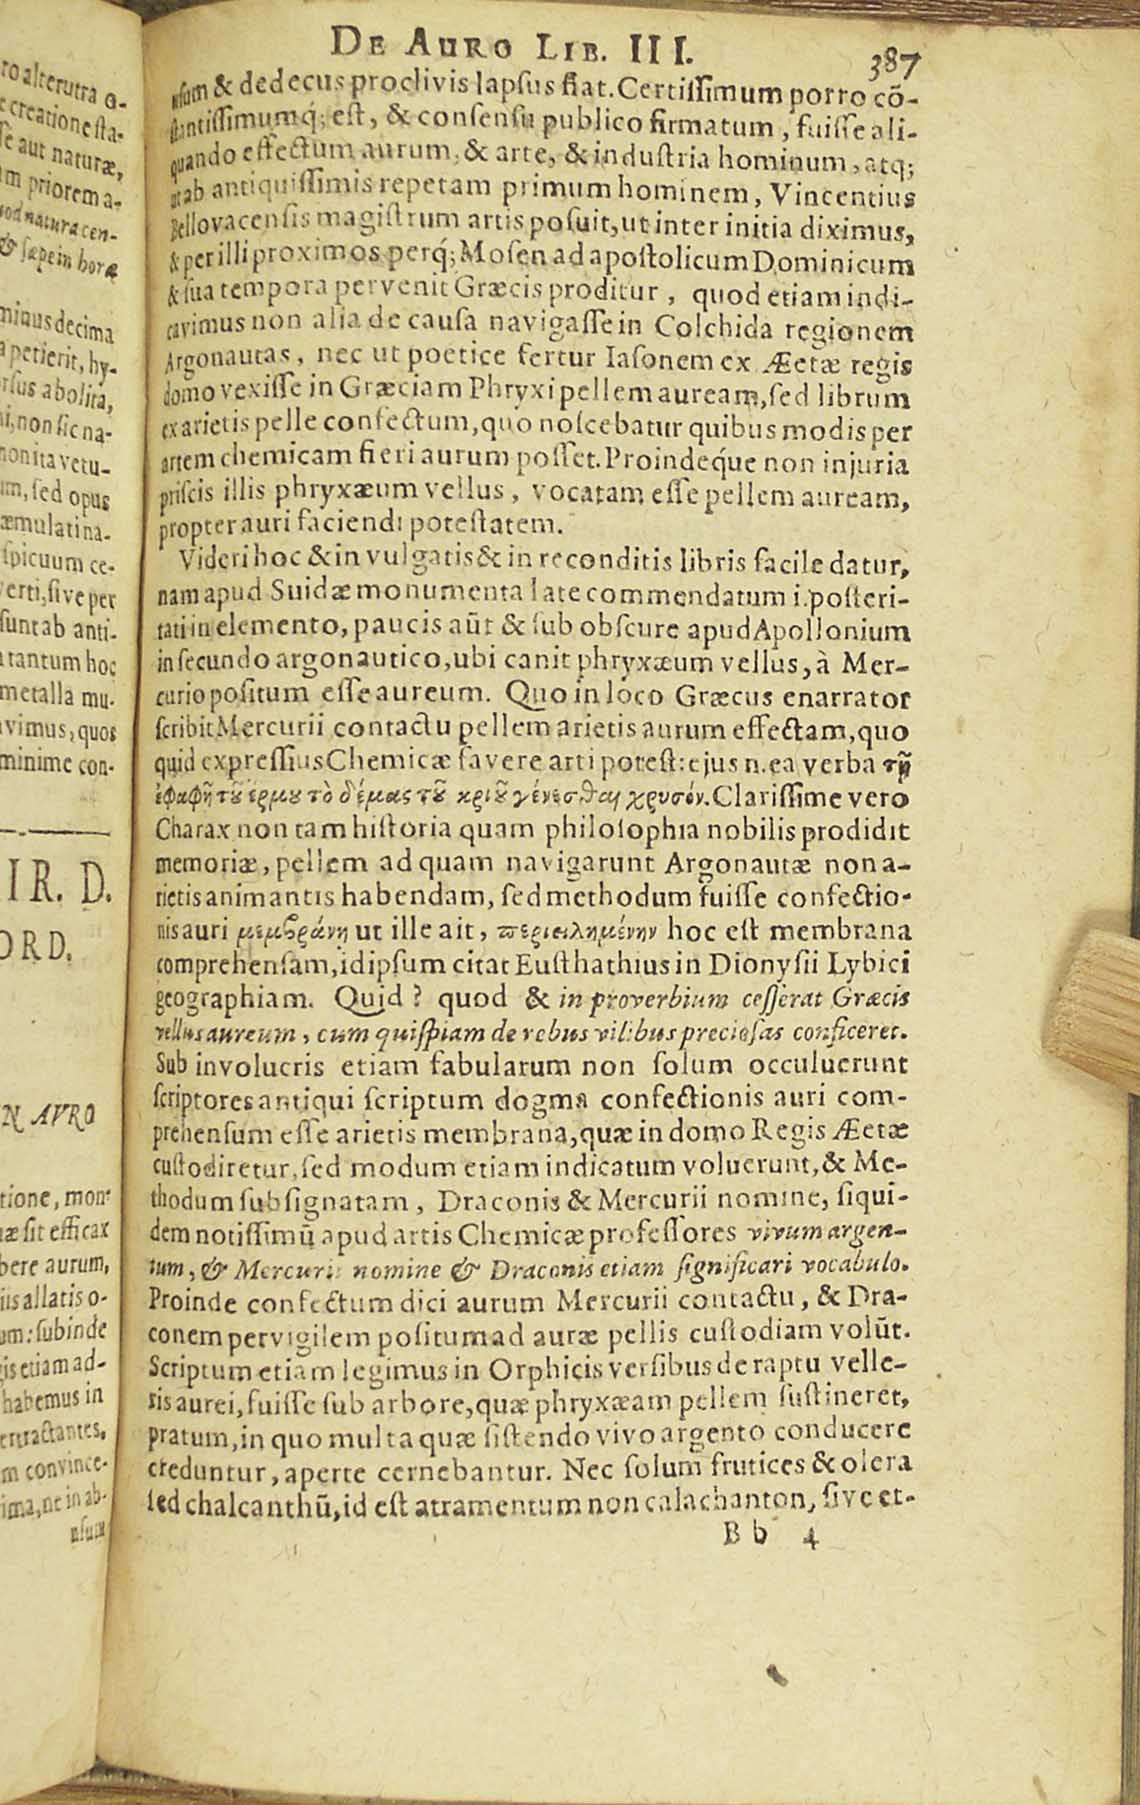 ro alterutra o-
e creatione sta-
se aut naturæ,
m priorem a-
od natura cen-
& sæpe in horæ
minus decima
a petierit, hy-
rsus abolita,
i, non sic na-
monita vetu-
um, sed opus
æmulati na-
spicuum ce-
verti, sive per
sunt ab anti-
tantum hoc
metalla mu-
vimus, quos
minime con-
IR. D.
ORD.
N AVRO
tione, mon-
æ sit efficax
bere aurum,
iis allatis o-
um: subinde
gis etiam ad-
habemus in
ertractantes,
m convince-
ima, ne in ab-
usum
DE AURO LIB. III.
387
usum & dedecus proclivis lapsus fiat. Certissimum porro cō-
stantissimumq́; est, & consensu publico firmatum, fuisse ali-
quando effectum aurum, & arte, & industria hominum, atq;
ut ab antiquissimis repetam primum hominem, Vincentius
Bellovacensis magistrum artis posuit, ut inter initia diximus,
& per illi proximos perq́; Mosen ad apostolicum Dominicum
& sua tempora pervenit Græcis proditur, quod etiam indi-
cavimus non alia de causa navigasse in Colchida regionem
Argonautas, nec ut poetice fertur Iasonem ex Æetæ regis
domo vexisse in Græciam Phryxi pellem auream, sed librum
ex arietis pelle confectum, quo noscebatur quibus modis per
artem chemicam fieri aurum posset. Proindeq́ue non injuria
priscis illis phryxæum vellus, vocatam esse pellem auream,
propter auri faciendi potestatem.
Videri hoc & in vulgatis & in reconditis libris facile datur,
nam apud Suidæ monumenta late commendatum i. posteri-
tati in elemento, paucis aūt & sub obscure apud Apollonium
in secundo argonautico, ubi canit phryxæum vellus, à Mer-
curio positum esse aureum. Quo in loco Græcus enarrator
scribit Mercurii contactu pellem arietis aurum effectam, quo
quid expressius Chemicæ favere arti potest: ejus n. ea verba τῇ
ἐφαφῇ τȣ͂ ἑρμȣ τὸ δέμας τȣ͂ κριȣ͂ γένεσθαι χρυσόν. Clarissime vero
Charax non tam historia quam philosophia nobilis prodidit
memoriæ, pellem ad quam navigarunt Argonautæ non a-
rietis animantis habendam, sed methodum fuisse confectio-
nis auri μεμβράνη ut ille ait, περιειλημένην hoc est membrana
comprehensam, id ipsum citat Eusthathius in Dionysii Lybici
geographiam. Quid? quod & in proverbium cesserat Græcis
vellus aureum, cum quispiam de rebus vilibus preciosas conficeret.
Sub involucris etiam fabularum non solum occuluerunt
scriptores antiqui scriptum dogma confectionis auri com-
prehensum esse arietis membrana, quæ in domo Regis Æetæ
custodiretur, sed modum etiam indicatum voluerunt, & Me-
thodum subsignatam, Draconis & Mercurii nomine, siqui-
dem notissimū apud artis Chemicæ professores vivum argen-
tum, & Mercurii nomine & Draconis etiam significari vocabulo.
Proinde confectum dici aurum Mercurii contactu, & Dra-
conem pervigilem positum ad auræ pellis custodiam volūt.
Scriptum etiam legimus in Orphicis versibus de raptu velle-
ris aurei, fuisse sub arbore, quæ phryxæam pellem sustineret,
pratum, in quo multa quæ sistendo vivo argento conducere
creduntur, aperte cernebantur. Nec solum frutices & olera
sed chalcanthū, id est atramentum non calachanton, sive et-
B b 4